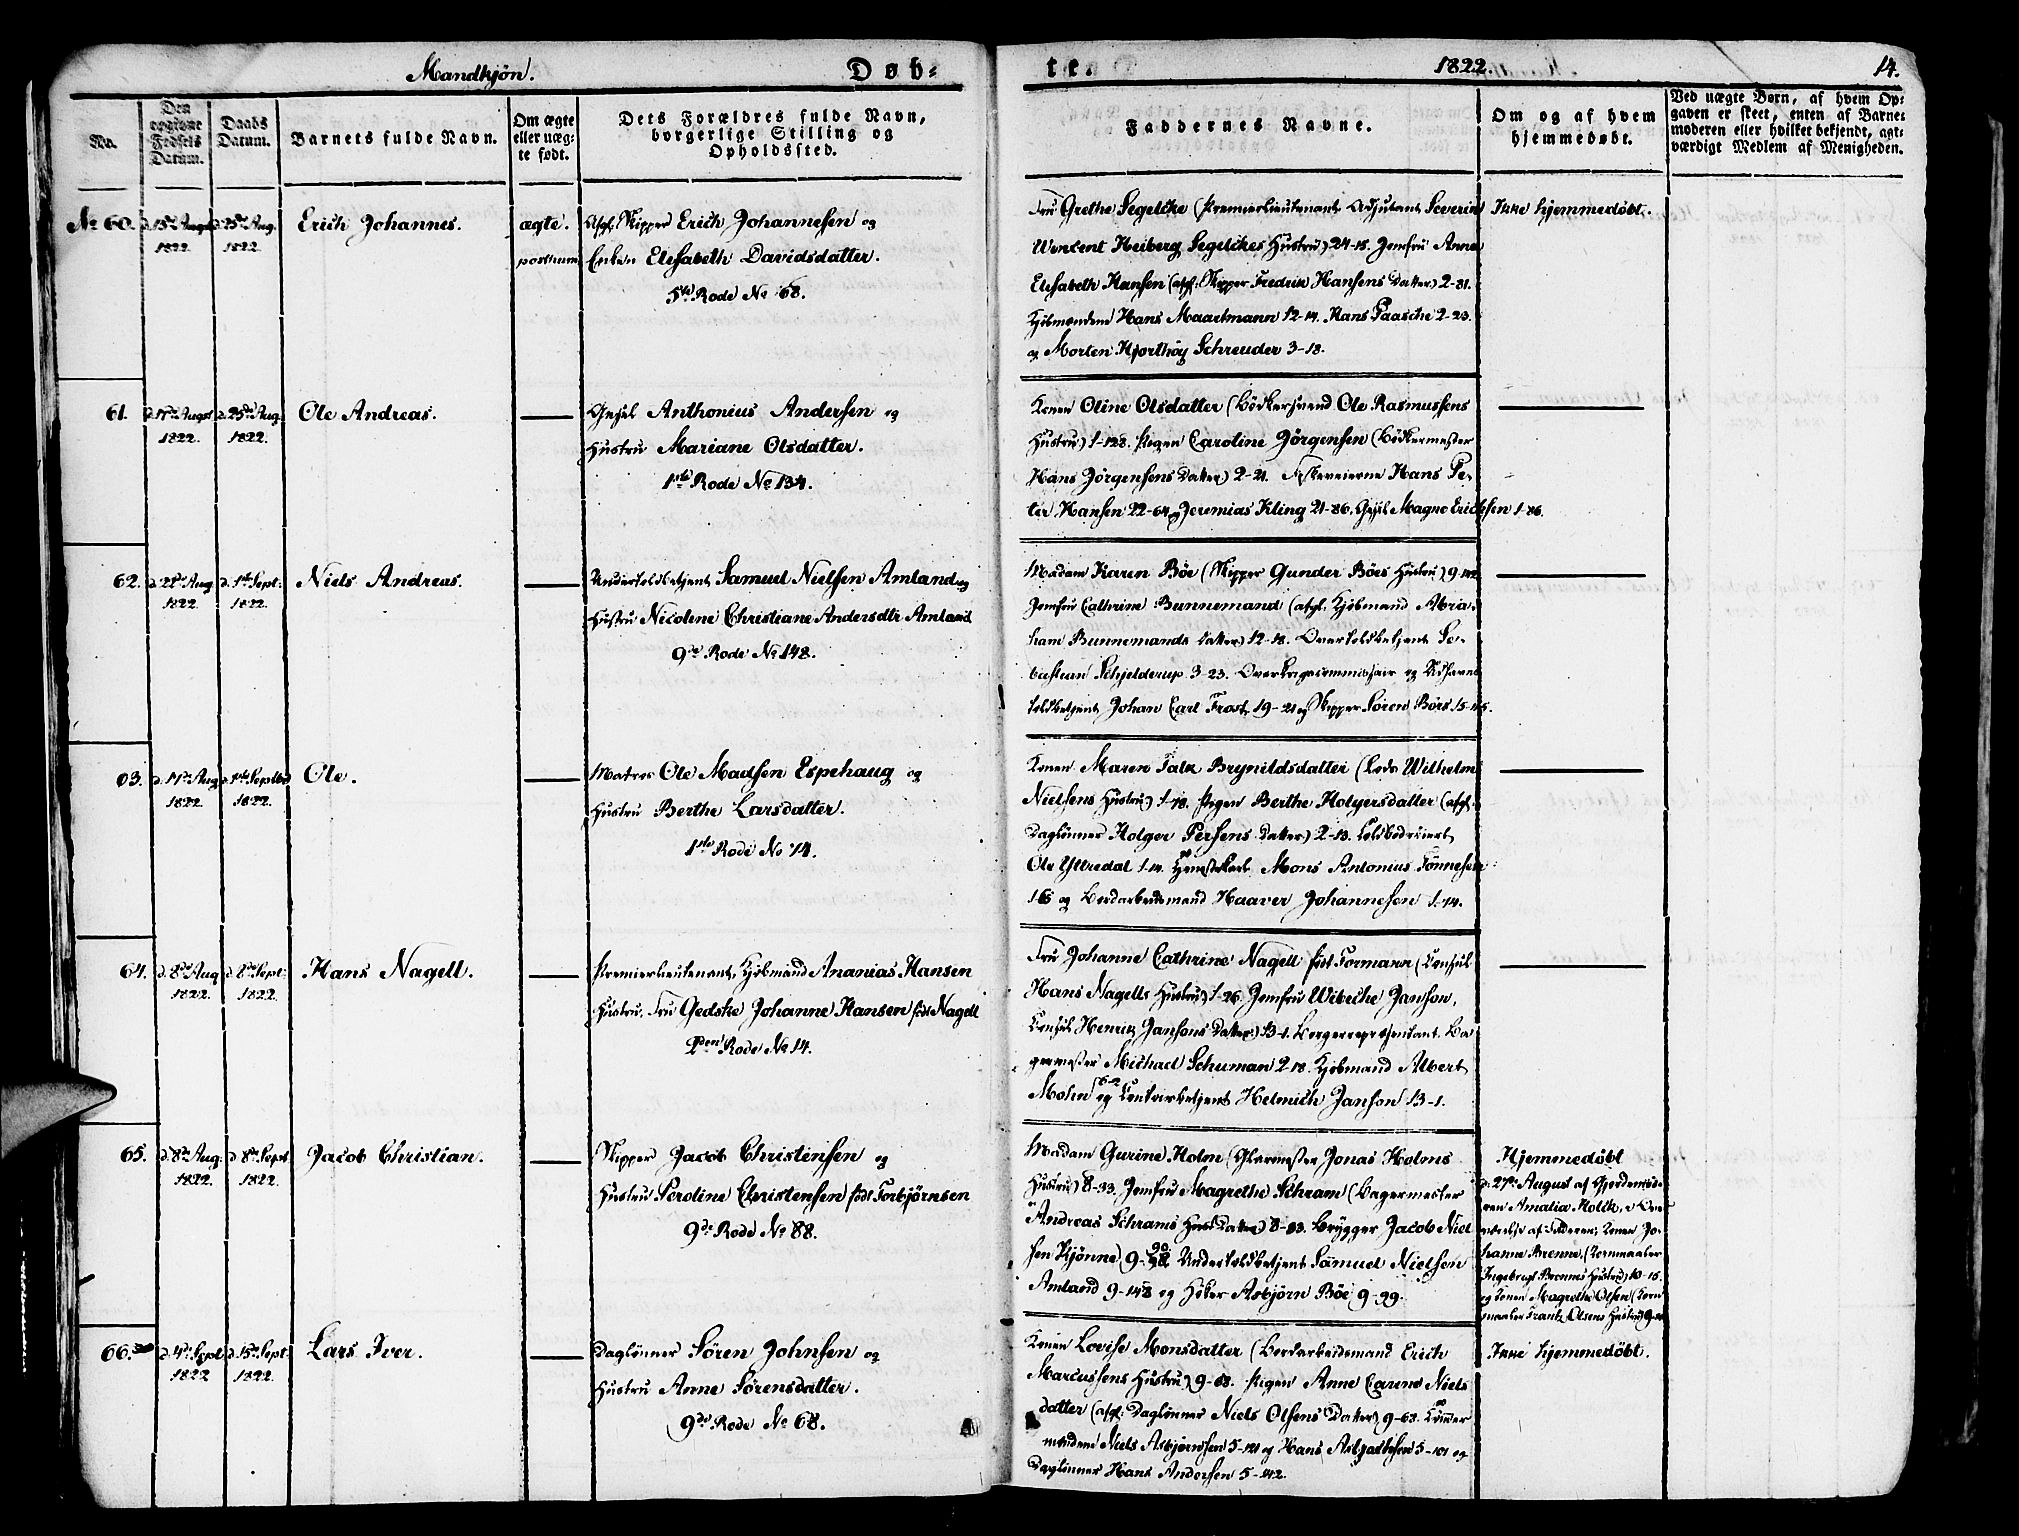 Mandkjön.
Døb-
te.
1822.
14.
No.
Den opgivne Fødsels Datum.
Daabs Datum.
Barnets fulde Navn.
Om ægte eller uægte født.
Dets Forældres fulde Navn, borgerlige Stilling og Opholdssted.
Faddernes Navne.
Om og af hvem hjemmedøbt.
Ved uægte Børn, af hvem Op-
gaven er skeet, enten af Barne-
moderen eller hvilket bekjendt, agt-
værdigt Medlem af Menigheden.
No 60.
d. 15de Augst 1822
d. 25de Aug. 1822.
Erich Johannes.
ægte.
posthum
Afgl. Skipper Erich Johannesen og
Enken Elisabeth Davidsdatter.
5te Rode No 68.
Fru Grethe Segelcke (Premierlieutenant Adjutant Severin
Wencent Heiberg Segelckes Hustru) 24-18. Jomfru Anne
Elisabeth Hansen (afgl. Skipper Fredrik Hansens Datter) 2-81.
Kjöbmændene Hans Maartmann 12-14. Hans Paasche 2-23.
og Morten Hjorthöy Schreuder 3-18.
Ikke hjemmedöbt.
61.
d. 17de Augst 1822.
d. 25de Aug. 1822.
Ole Andreas.
Gesel Anthonius Andersen og
Hustru Mariane Olsdatter.
1ste Rode No 134.
Konen Oline Olsdatter (Bödkersvend Ole Rasmussens
Hustru) 1-128. Pigen Caroline Jörgensen (Bödkermester
Hans Jörgensens Datter) 2-21. Fiskeveierne Hans Pe-
ter Hansen 22-64 og Jeremias Kling 21-86. Gesel Magne Ericksen 1-86.
62.
d. 22de Aug 1822
d. 1ste Sept: 1822.
Niels Andreas.
Undertoldbetjent Samuel Nielsen Amland og
Hustru Nicoline Christiane Andersdtr Amland
9de Rode No 148.
Madam Karen Böe (Skipper Gunder Böes Hustru) 9-142
Jomfru Cathrine Bunnemand (afgl. Kjöbmand Abra-
ham Bunnemands Datter) 12-18. Overtoldbetjent Se-
bastian Schjelderup 3-23. Overkrigscommissair og
toldbetjent Johan Carl Frost 19-21 og Skipper Sören Börs 15-115.
63.
d. 11te Aug 1822
d. 1ste Septbr 1822.
Ole.
Matros Ole Madsen Espehaug og
Hustru Berthe Larsdatter.
1ste Rode No 74.
Konen Maren Falk Brynildsdatter (Lods Wilhelm
Nielsens Hustru) 1-18. Pigen Berthe Holgersdatter (afgl.
Daglönner Holger Persens Datter) 2-13.
Ole Yttredal 1-14. Mons Antonius Tönnesen
1-65 og Bordarbeidsmand Haaver Johannesen 1-14.
64.
d. 8de Aug 1822.
d. 8de Sept: 1822.
Hans Nagell.
Premierlieutenant, Kjöbmand Ananias Hansen
Hustru, Fru Gedske Johanne Hansen föd Nagell
2den Rode No 14.
Fru Johanne Cathrine Nagell föd Formann (Consul
Hans Nagells Hustru) 1-26. Jomfru Wibeche Janson,
Consul Henrik Jansons Datter) 13-1. Borgerrepræsentant. Ba-
germester Michael Schuman 2-18. Kjöbmand Albert
Mohn 6-2 og Contoirbetjent Helmich Janson 13-1.
65.
d. 8de Aug. 1822.
d. 8de Sept 1822.
Jacob Christian.
Skipper Jacob Christensen og
Hustru Seroline Christensen föd Torbjörnsen
9de Rode No 88.
Madam Gurine Holm (Glarmester Jonas Holms
Hustru) 8-33. Jomfru Magrethe Schram (Bagermester
Andreas Schrams Datter) 8-83. Brygger Jacob Niel
sen Kjönne) 9-90. Undertoldbetjent Samuel Nielsen
Amland 9-148 og Höker Asbjörn Böe 9-99.
Hjemmedöbt
d. 27de August af Gjordemode-
ren Amalia Holck, i Over
værelse af: Faderen; Konen Jo-
hanne Brenne, (Kornmaaler
Ingebregt Brennes Hustru) 10-15.
og Konen Magrethe Olsen (Korn
maaler Frantz Olsens Hustru) 9-
66.
d. 4de Sept 1822
d. 15de Sept: 1822.
Lars Iver.
Daglönner Sören Johnsen og
Hustru Anne Sörensdatter.
9de Rode No 68.
Konen Lovise Monsdatter (Bordarbeidsmand Erich
Marcussens Hustru) 9-68. Pigen Anne Carine Niels
datter (afgl: Daglönner Niels Olsens Datter) 9-63. Tömmer
mændene Niels Asbjörnsen 5-121 og Hans Asbjörnsen 5-101 og
Daglönner Hans Andersen 5-142.
Ikke hjemmedöbt.